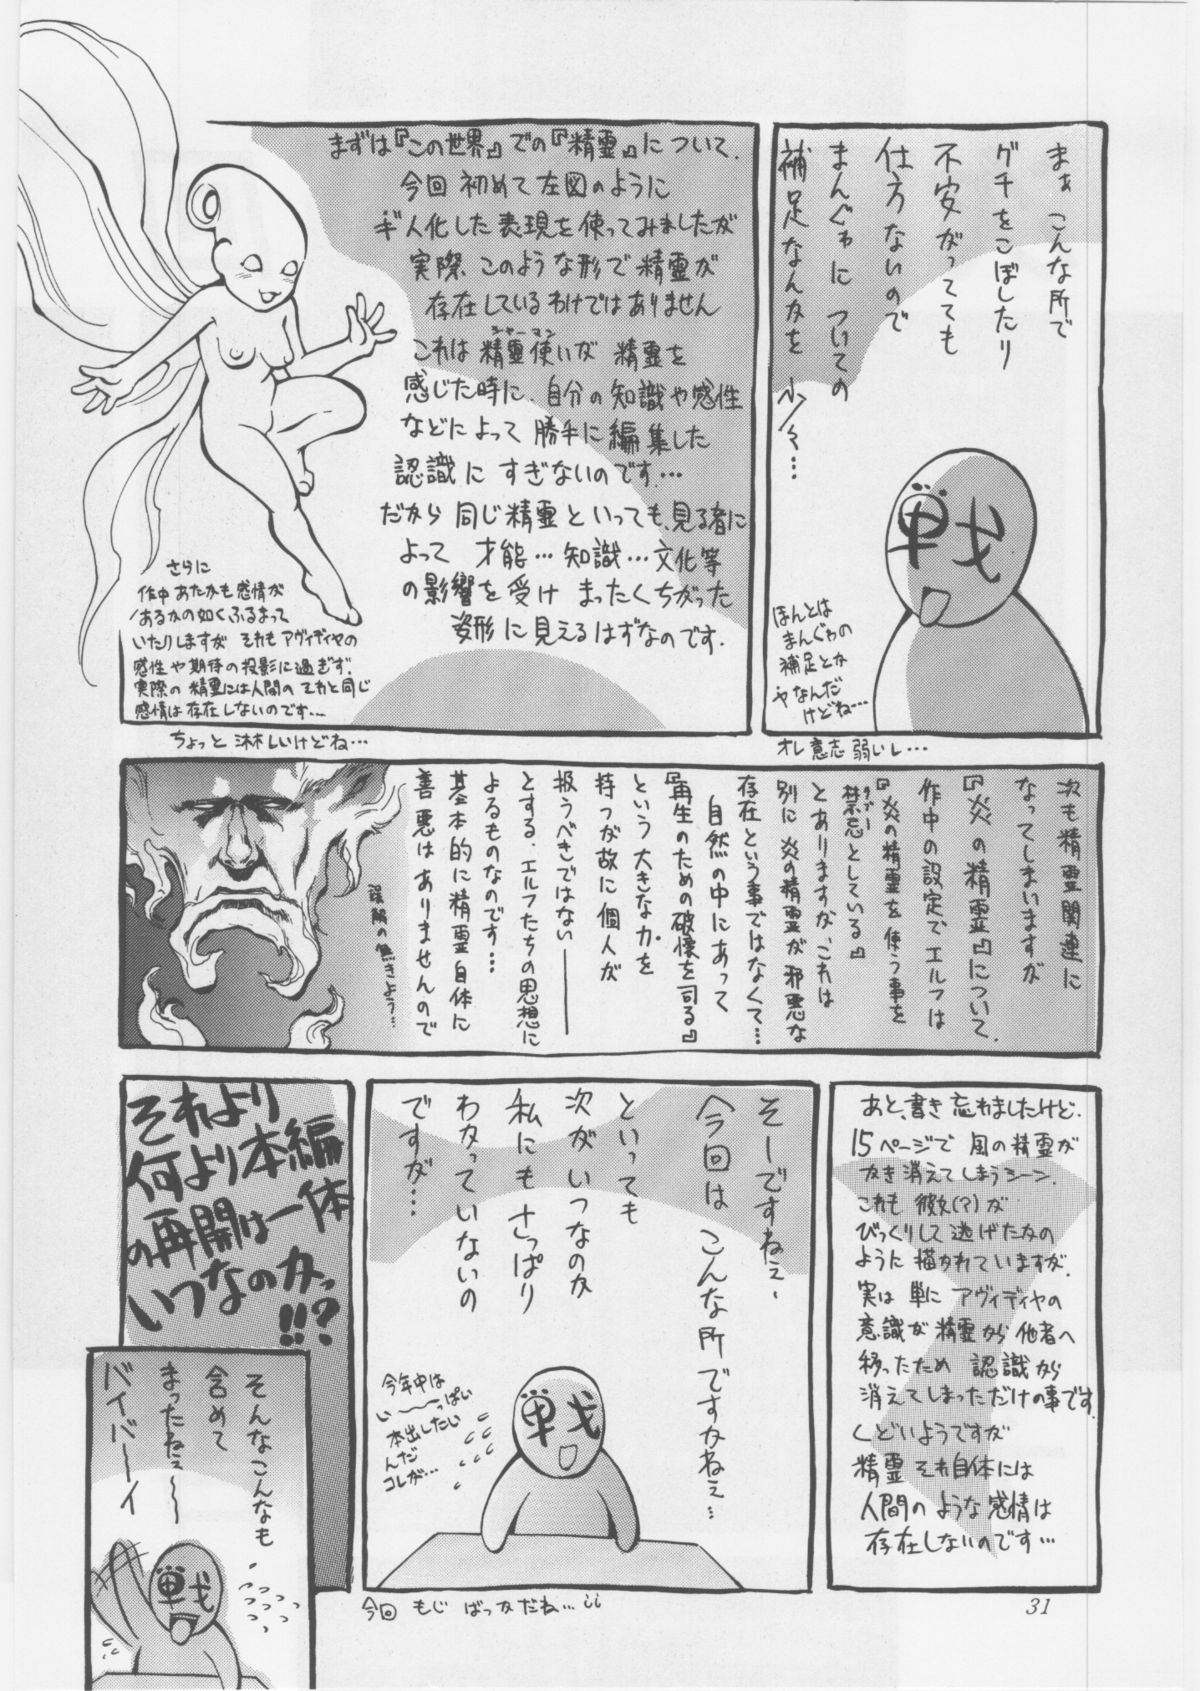 まぁ こんな所で
グチをこぼしたり
不安がってても
仕方ないので
まんぐゎに ついての
補足なんかを 少々…
ほんとは
まんぐゎの
補足とか
ヤなんだ
けどね…
オレ意志弱いし…
まずは『この世界』での『精霊』について.
今回 初めて左図のように
ギ人化した表現を使ってみましたが
実際、このような形で精霊が
存在しているわけではありません
シャーマン
これは精霊使いが 精霊を
感じた時に、自分の知識や感性
などによって勝手に編集した
認識に すぎないのです…
だから 同じ精霊といっても、見る者に
よって 才能…知識…文化等
の影響を受け まったくちがった
姿形に見えるはずなのです.
さらに
作中あたかも感情が
あるかの如くふるまって
いたりしますが それも アヴィディヤの
感性や期待の投影に過ぎず.
実際の精霊には人間のそれと同じ
感情は存在しないのです…
ちょっと淋しいけどね…
次も精霊関連に
なってしまいますが
『炎の精霊』について.
作中の設定でエルフは
『炎の精霊を使う事を
タブー
禁忌としている』
とありますが、これは
別に炎の精霊が邪悪な
存在という事ではなくて…
自然の中にあって
『再生のための破壊を司る』
という大きな力を
持つが故に個人が
扱うべきではない――
とする、エルフたちの思想に
よるものなのです…
基本的に精霊自体に
善悪はありませんので
誤解の無きよう…
あと、書き忘れましたけど.
15ページで 風の精霊が
かき消えてしまうシーン.
これも 彼女(?)が
びっくりして逃げたかの
ように描かれていますが.
実は 単に アヴィディヤの
意識が精霊から他者へ
移ったため 認識から
消えてしまっただけの事です.
くどいようですが
精霊それ自体には
人間のような感情は
存在しないのです…
そーですねぇ、
今回はこんな所ですかねぇ…
といっても
次がいつなのか
私にもさっぱり
わかっていないの
ですが…
戦
今年中は
い〜っぱい
本出したい
んだ
コレが…
今回 もじ ばっかだね…
それより
何より本編
の再開は一体
いつなのかっ
!!?
そんなこんなも
含めて
まったねぇ〜〜
バイバーイ
戦
31